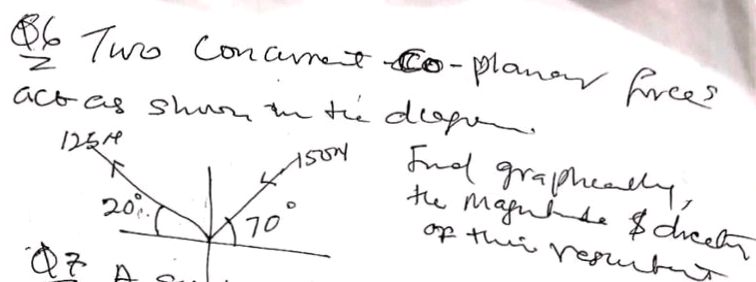 Q6 Two Concurrent Co-planar forces
act as shown in the diagram.
125N
150N
20°
70°
Find graphically,
the magnitude & direction
of their resultant
Q7 A